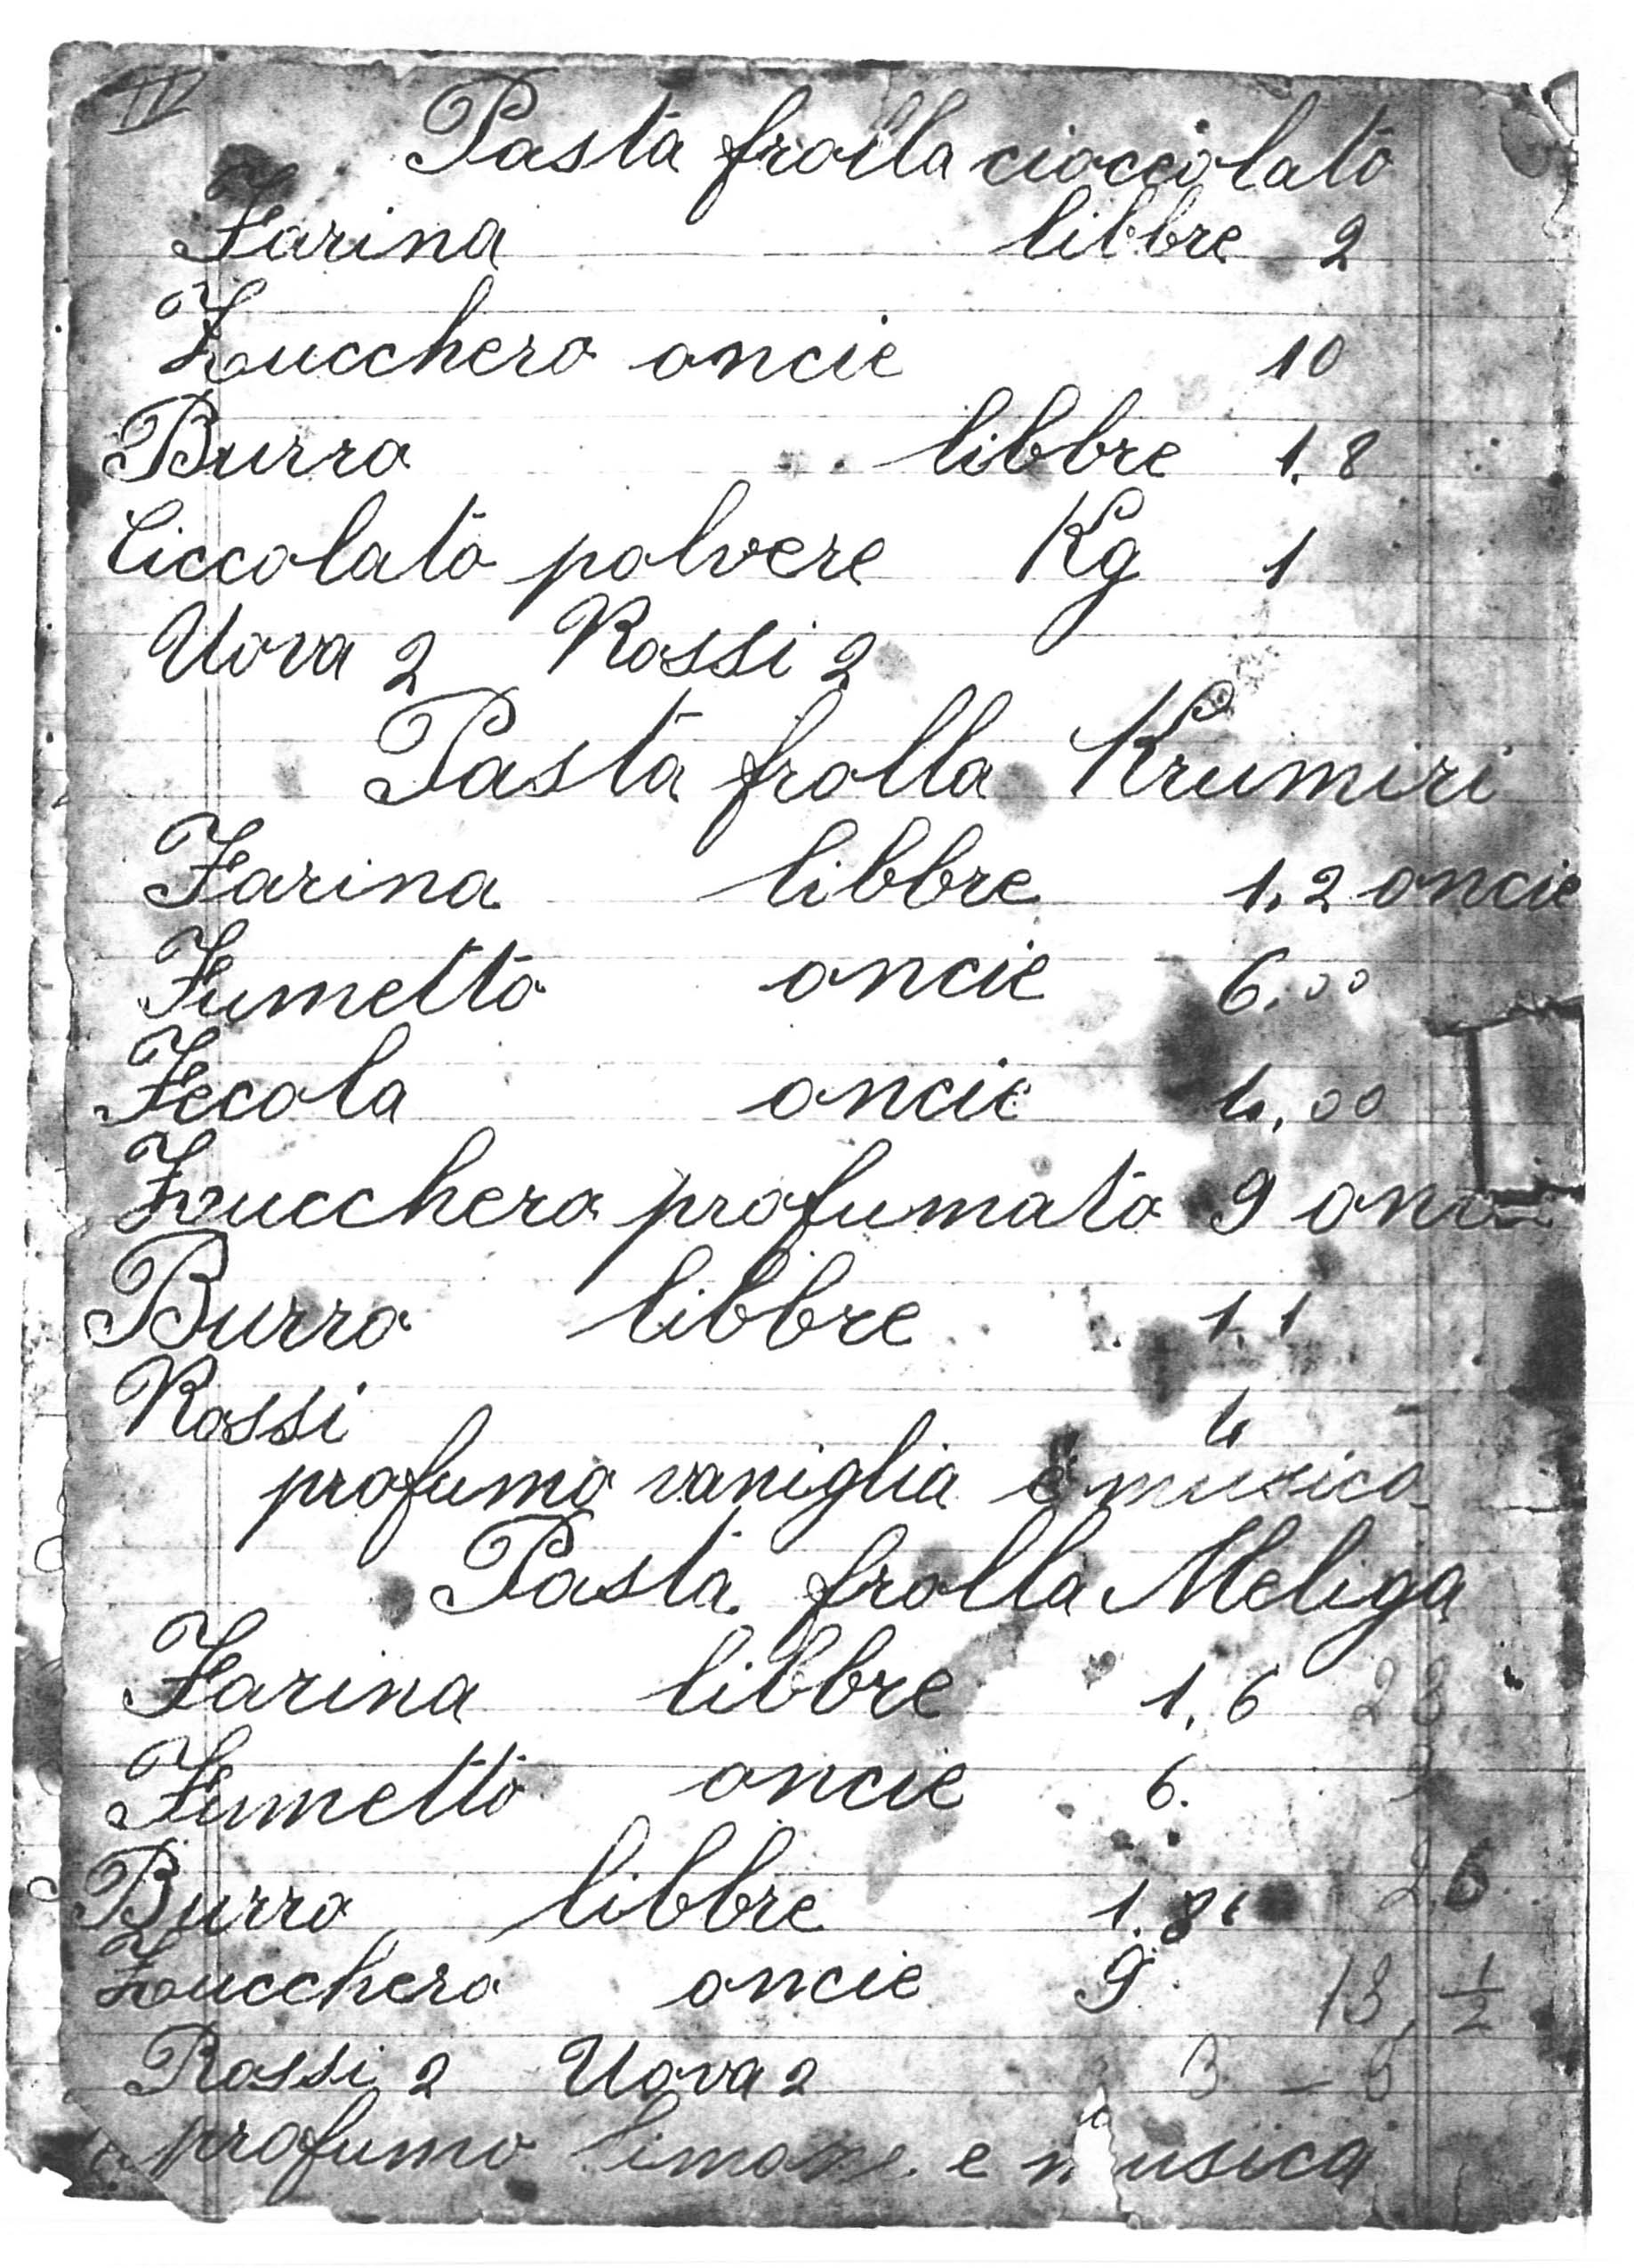 IV
Pasta frolla cioccolato
Farina libbre 2
Zucchero oncie 10
Burro libbre 1,8
Ciccolato polvere Kg 1
Uova 2 Rossi 2
Pasta frolla Krumiri
Farina libbre 1,2 oncie
Fumetto oncie 6,00
Fecola oncie 4,00
Zucchero profumato 9
Burro libbre 1,1
Rossi 4
profumo vaniglia e musica
Pasta frolla Meliga
Farina libbre 1,6 28
Fumetto oncie 6.
Burro libbre 1.8 2.6
Zucchero oncie 9. 13, 1/2
Rossi 2 Uova 2 3
profumo limone e musica